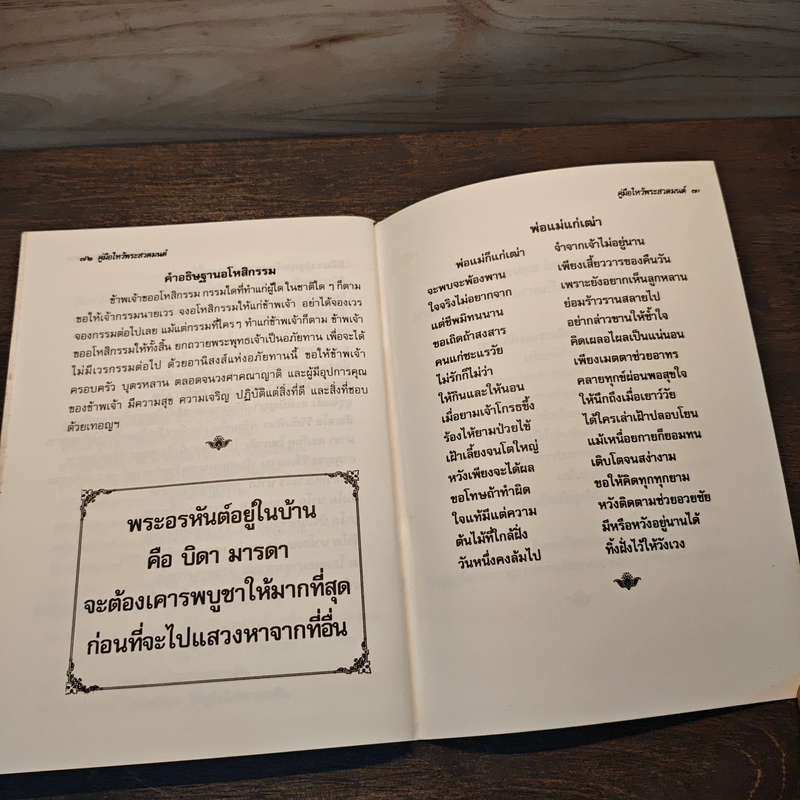 ๗๒ คู่มือไหว้พระสวดมนต์
คำอธิษฐานอโหสิกรรม
ข้าพเจ้าขออโหสิกรรม กรรมใดที่ทำแก่ผู้ใด ในชาติใด ๆ ก็ตาม
ขอให้เจ้ากรรมนายเวร จงอโหสิกรรมให้แก่ข้าพเจ้า อย่าได้จองเวร
จองกรรมต่อไปเลย แม้แต่กรรมที่ใครๆ ทำแก่ข้าพเจ้าก็ตาม ข้าพเจ้า
ขออโหสิกรรมให้ทั้งสิ้น ยกถวายพระพุทธเจ้าเป็นอภัยทาน เพื่อจะได้
ไม่มีเวรกรรมต่อไป ด้วยอานิสงส์แห่งอภัยทานนี้ ขอให้ข้าพเจ้า
ครอบครัว บุตรหลาน ตลอดจนวงศาคณาญาติ และผู้มีอุปการคุณ
ของข้าพเจ้า มีความสุข ความเจริญ ปฏิบัติแต่สิ่งที่ดี และสิ่งที่ชอบ
ด้วยเทอญฯ
พระอรหันต์อยู่ในบ้าน
คือ บิดา มารดา
จะต้องเคารพบูชาให้มากที่สุด
ก่อนที่จะไปแสวงหาจากที่อื่น
คู่มือไหว้พระสวดมนต์
พ่อแม่แก่เฒ่า
พ่อแม่ก็แก่เฒ่า จำจากเจ้าไม่อยู่นาน
จะพบจะพ้องพาน เพียงเสี้ยววารของคืนวัน
ใจจริงไม่อยากจาก เพราะยังอยากเห็นลูกหลาน
แต่ชีพมิทนนาน ย่อมร้าวรานสลายไป
ขอเถิดถ้าสงสาร อย่ากล่าวขานให้ช้ำใจ
คนแก่ชะแรวัย คิดเผลอไผลเป็นแน่นอน
ไม่รักก็ไม่ว่า เพียงเมตตาช่วยอาทร
ให้กินและให้นอน คลายทุกข์ผ่อนพอสุขใจ
เมื่อยามเจ้าโกรธขึ้ง ให้นึกถึงเมื่อเยาว์วัย
ร้องไห้ยามป่วยไข้ ได้ใครเล่าเฝ้าปลอบโยน
เฝ้าเลี้ยงจนโตใหญ่ แม้เหนื่อยกายก็ยอมทน
หวังเพียงจะได้ผล เติบโตจนสง่างาม
ขอโทษถ้าทำผิด ขอให้คิดทุกทุกยาม
ใจแท้มีแต่ความ หวังติดตามช่วยอวยชัย
ต้นไม้ที่ใกล้ฝั่ง มีหรือหวังอยู่นานได้
วันหนึ่งคงล้มไป ทิ้งฝั่งไว้ให้วังเวง